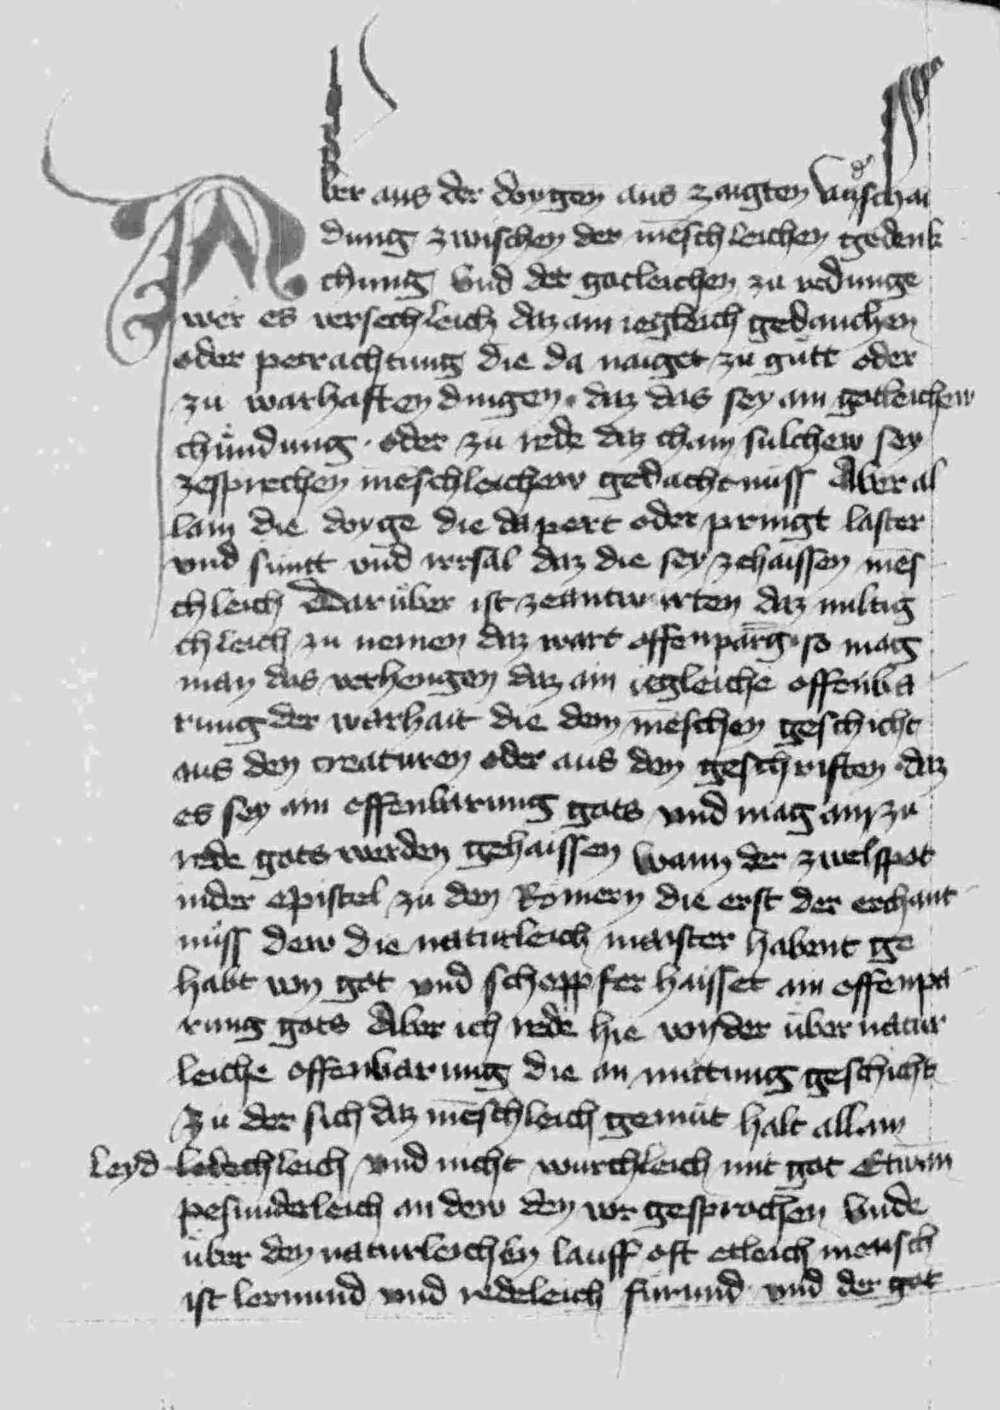 Aber aus der doygen aus zaigten vnderschai
dung zwischen der menschleichen gedenk
chung Vnd der gotleichen zu redunge
wer es versechleich daz ain iegleich gedauchen
oder petrachtung die da naiget zu gutt oder
zu warhaften dingen · daz das sey ain gotleichew
chu̇ndung · oder zu rede daz chain sulchew sey
zesprechen mēschleichew gedachtnuss Aber al
lain die doyge die da pert oder pringt laster
vnd suntt vnd irrsal daz die sey zehaissen mēs
chleich Darüber ist zeantwurten daz miltig
chleich zu nemen daz wart offenparūg · so mag
man das verhengen daz ain iegleiche offenba
rung der warhait die dem mēschen geschicht
aus den creaturen oder aus den geschriften · daz
es sey ain offenbarung gots vnd mag ain zu
rede gots werden gehaissen Wann der zwelfpot
in der epistel zu den Romern die erst der erchant
nuss dew die naturleich maister habent ge
habt von got vnd scheppfer haisset ain offenpa
rung gots Aber ich rede hie von der über natur
leiche offenbarung die an mittung geschicht
Zu der sich daz mēschleich gemüt halt allain
leyd ledechleich vnd nicht wurchleich mit got Etwan
pesunderleich an dew den wir gesprochen Vnde
über den naturleichen lauff oft etleich mensch
ist lermund vnd redeleich furund · vnd der got